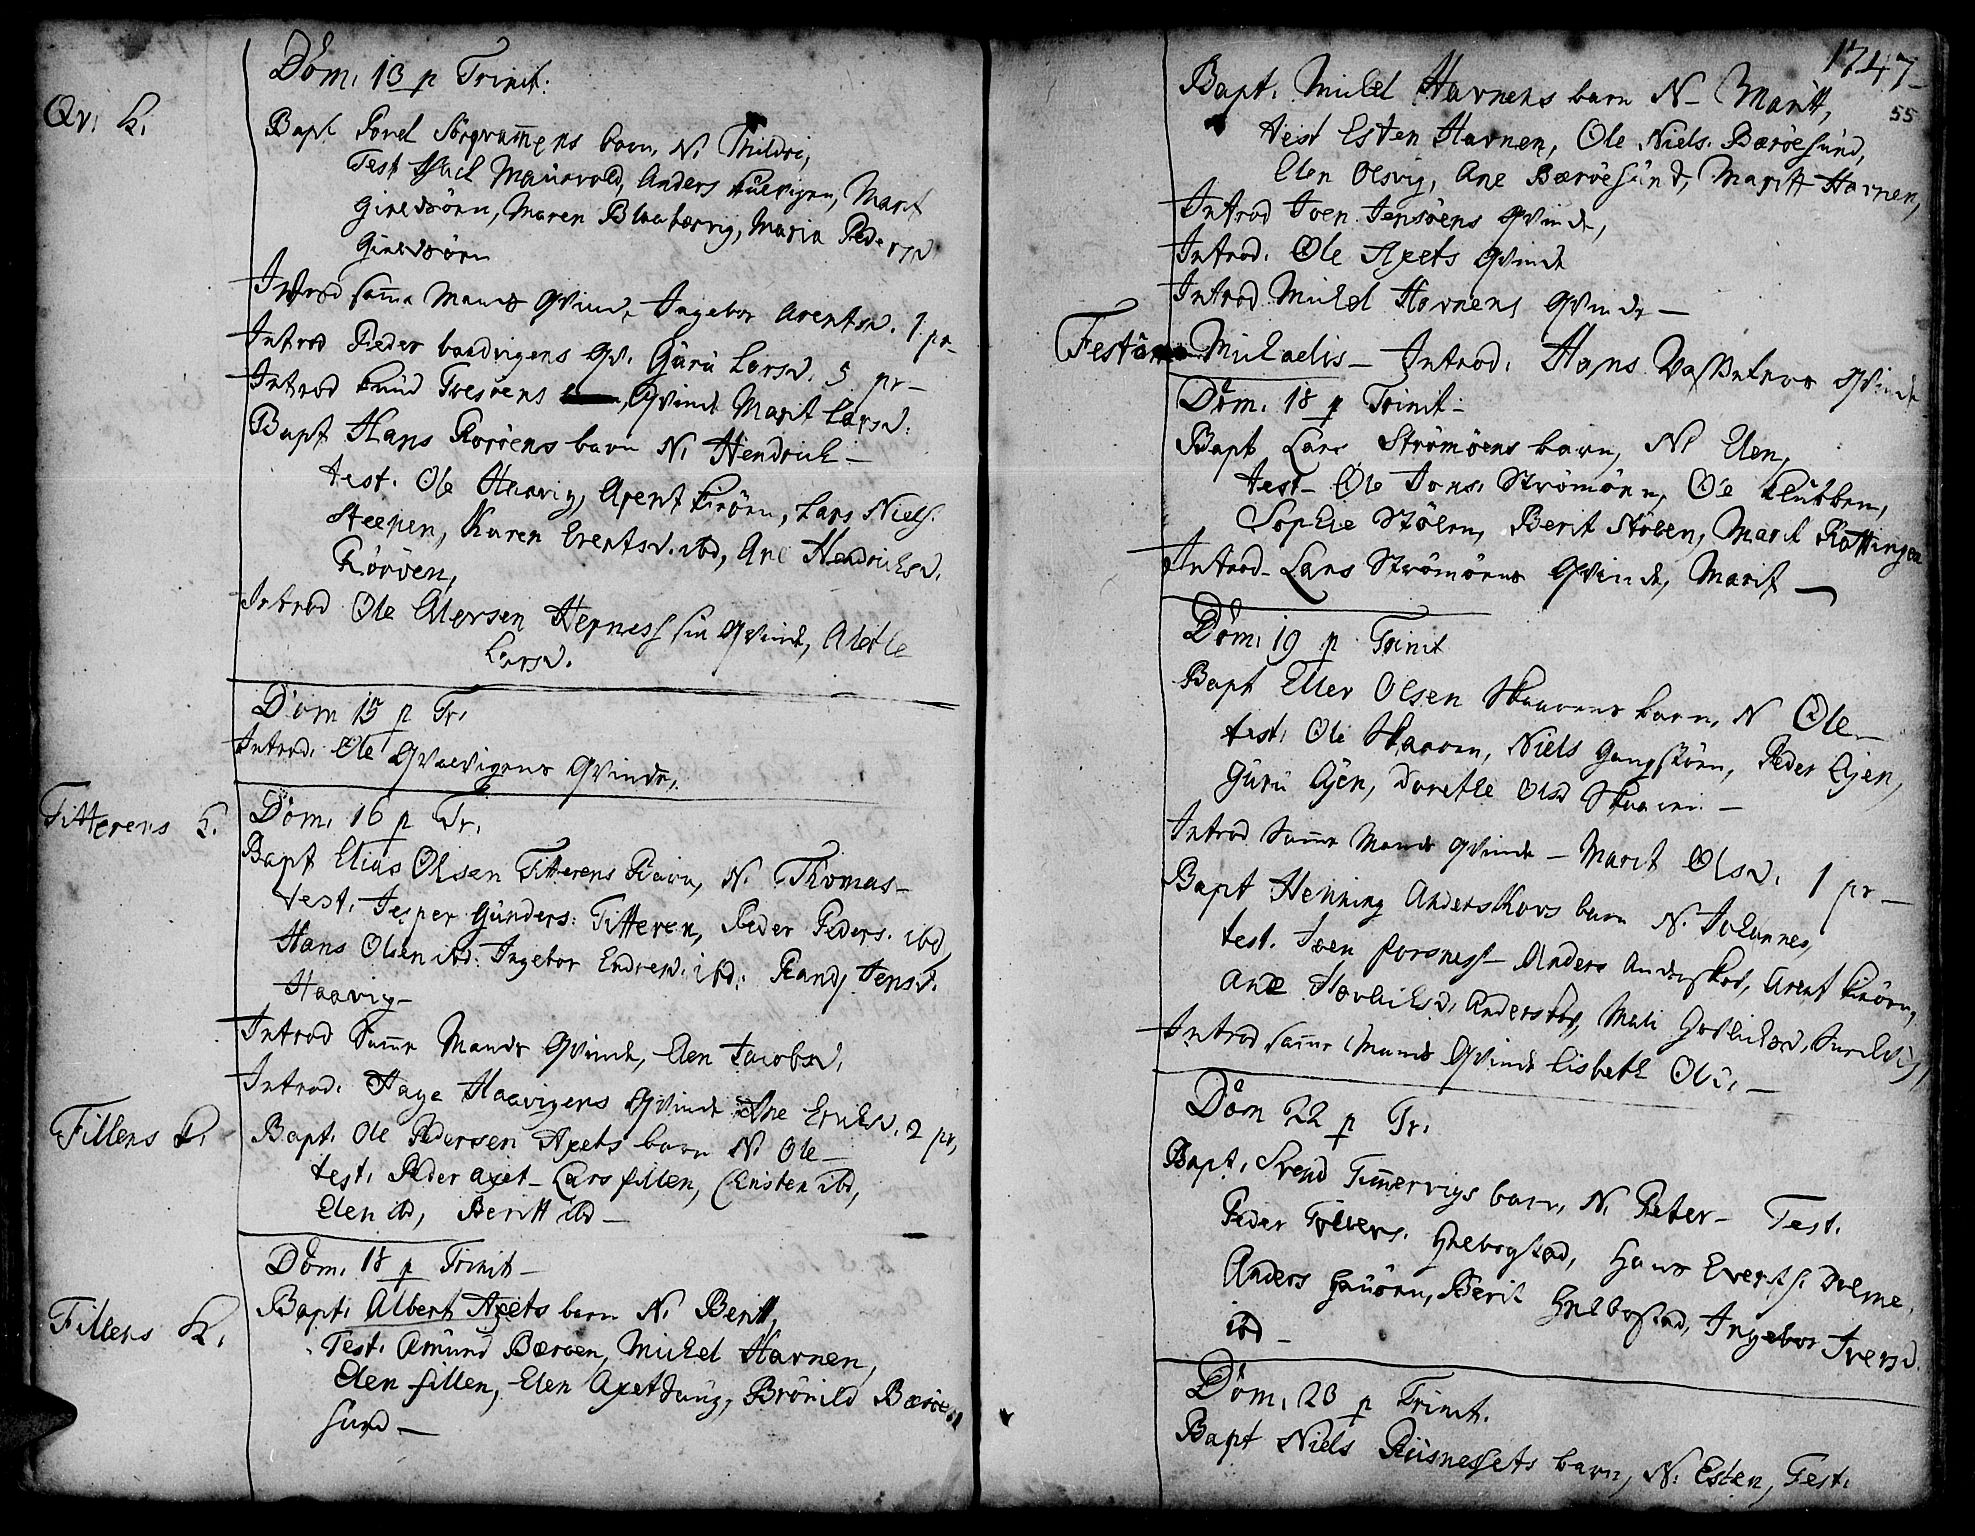 Dom. 13 p Trinit:
Qv. K.
Bapt Povel Sørgrammens barn, N. Thildri,
Test Maurvold, Anders, Marit
Maren Blaabærvig, Maria Pedersd
Introd samme Mands Qvinde Ingebor Arentsd. 1 pr
Introd Peder baadvigens Qv. Guru Larsd. 5 pr-
Introd Knud Qvinde Marit Larsd:
Bapt Hans Rorøens barn N. Hendrich-
test. Ole Haavig, Arent Kirøen, Lars Niels.
Steenen, Karen Erentsd. ibd, Ane Hendrichsd.
Rørøen,
Introd Ole Hernes sin Qvinde, Aletle
Larsd.
Dom 15 p Tr.
Introd. Ole Qvalvigens Qvinde.
Titterens K.
Dom. 16 p Tr.
Bapt Elias Olsen Titterens Barn, N. Thomas-
test. Jesper Gunders: Titteren, Peder Peders. ibd,
Hans Olsen ibd. Ingebor Endresd. ibd: Randj Jensd.
Haavig-
Introd Samme Mands Qvinde, Elen Jacobsd.
Introd. Hage Haavigens Qvinde Ane Erichsd. 2 pr,
Fillens K.
Bapt. Ole Pedersen Axets barn N. Ole-
test. Peder axet- Lars fillen, Censten ibd,
Elen ibd, Beritt ibd-
Dom. 18 p Trinit-
Fillens K.
Bapt. Albert Axets barn N. Beritt,
Test. Amund Bærøen, Michel Havnen,
Elen fillen, Elen Axet, Brønild Bærøe
sund-
1747-
55
Bapt. Michel Havnens barn N- Maritt,
test Esten Havnen, Ole Niels. Bærøesund,
Elen Olsvig, Ane Bærøesund, Maritt Havnen,
Introd Joen Jensøens Qvinde,
Introd. Ole Axets Qvinde
Introd Michel Havnens Qvinde-
Festum Michaelis- Introd. Hans Qvinde
Dom. 18 p Trinit-
Bapt Lars Strømøens barn, N. Elen,
test- Ole Jons. Strømøen, Ole Klubben,
Sophie Stølen, Berit Stølen, Marit Rottingen
Introd- Lars Strømøens Qvinde, Marit-
Dom. 19 p Trinit
Bapt Eller Olsen Skaarens barn, N Ole-
test. Ole Skaaren, Niels Gangstøen, Peder Ejen,
Guru Ejen, Dorethe Olsd Skaaren-
Introd Samme Mands Qvinde- Marit Olsd. 1 pr-
Bapt Henning Anderskovs barn N. Johannes,
test. Joen forsnes- Anders Anderskov, Arent Kirøen,
Ane, Anderskov, Mali
Introd samme Mands Qvinde Lisbeth Ols.-
Dom 22 p Tr.
Bapt. Svend Timmervigs barn, N. Peter- Test.
Peder Tollers. Helbostad, Hans Everts. Dolme,
Anders, Berit Helbostad, Ingebor Iversd.
ibd-
Dom. 23 p Trinit.
Bapt Niels Riisnesets barn, N. Esten, Test.